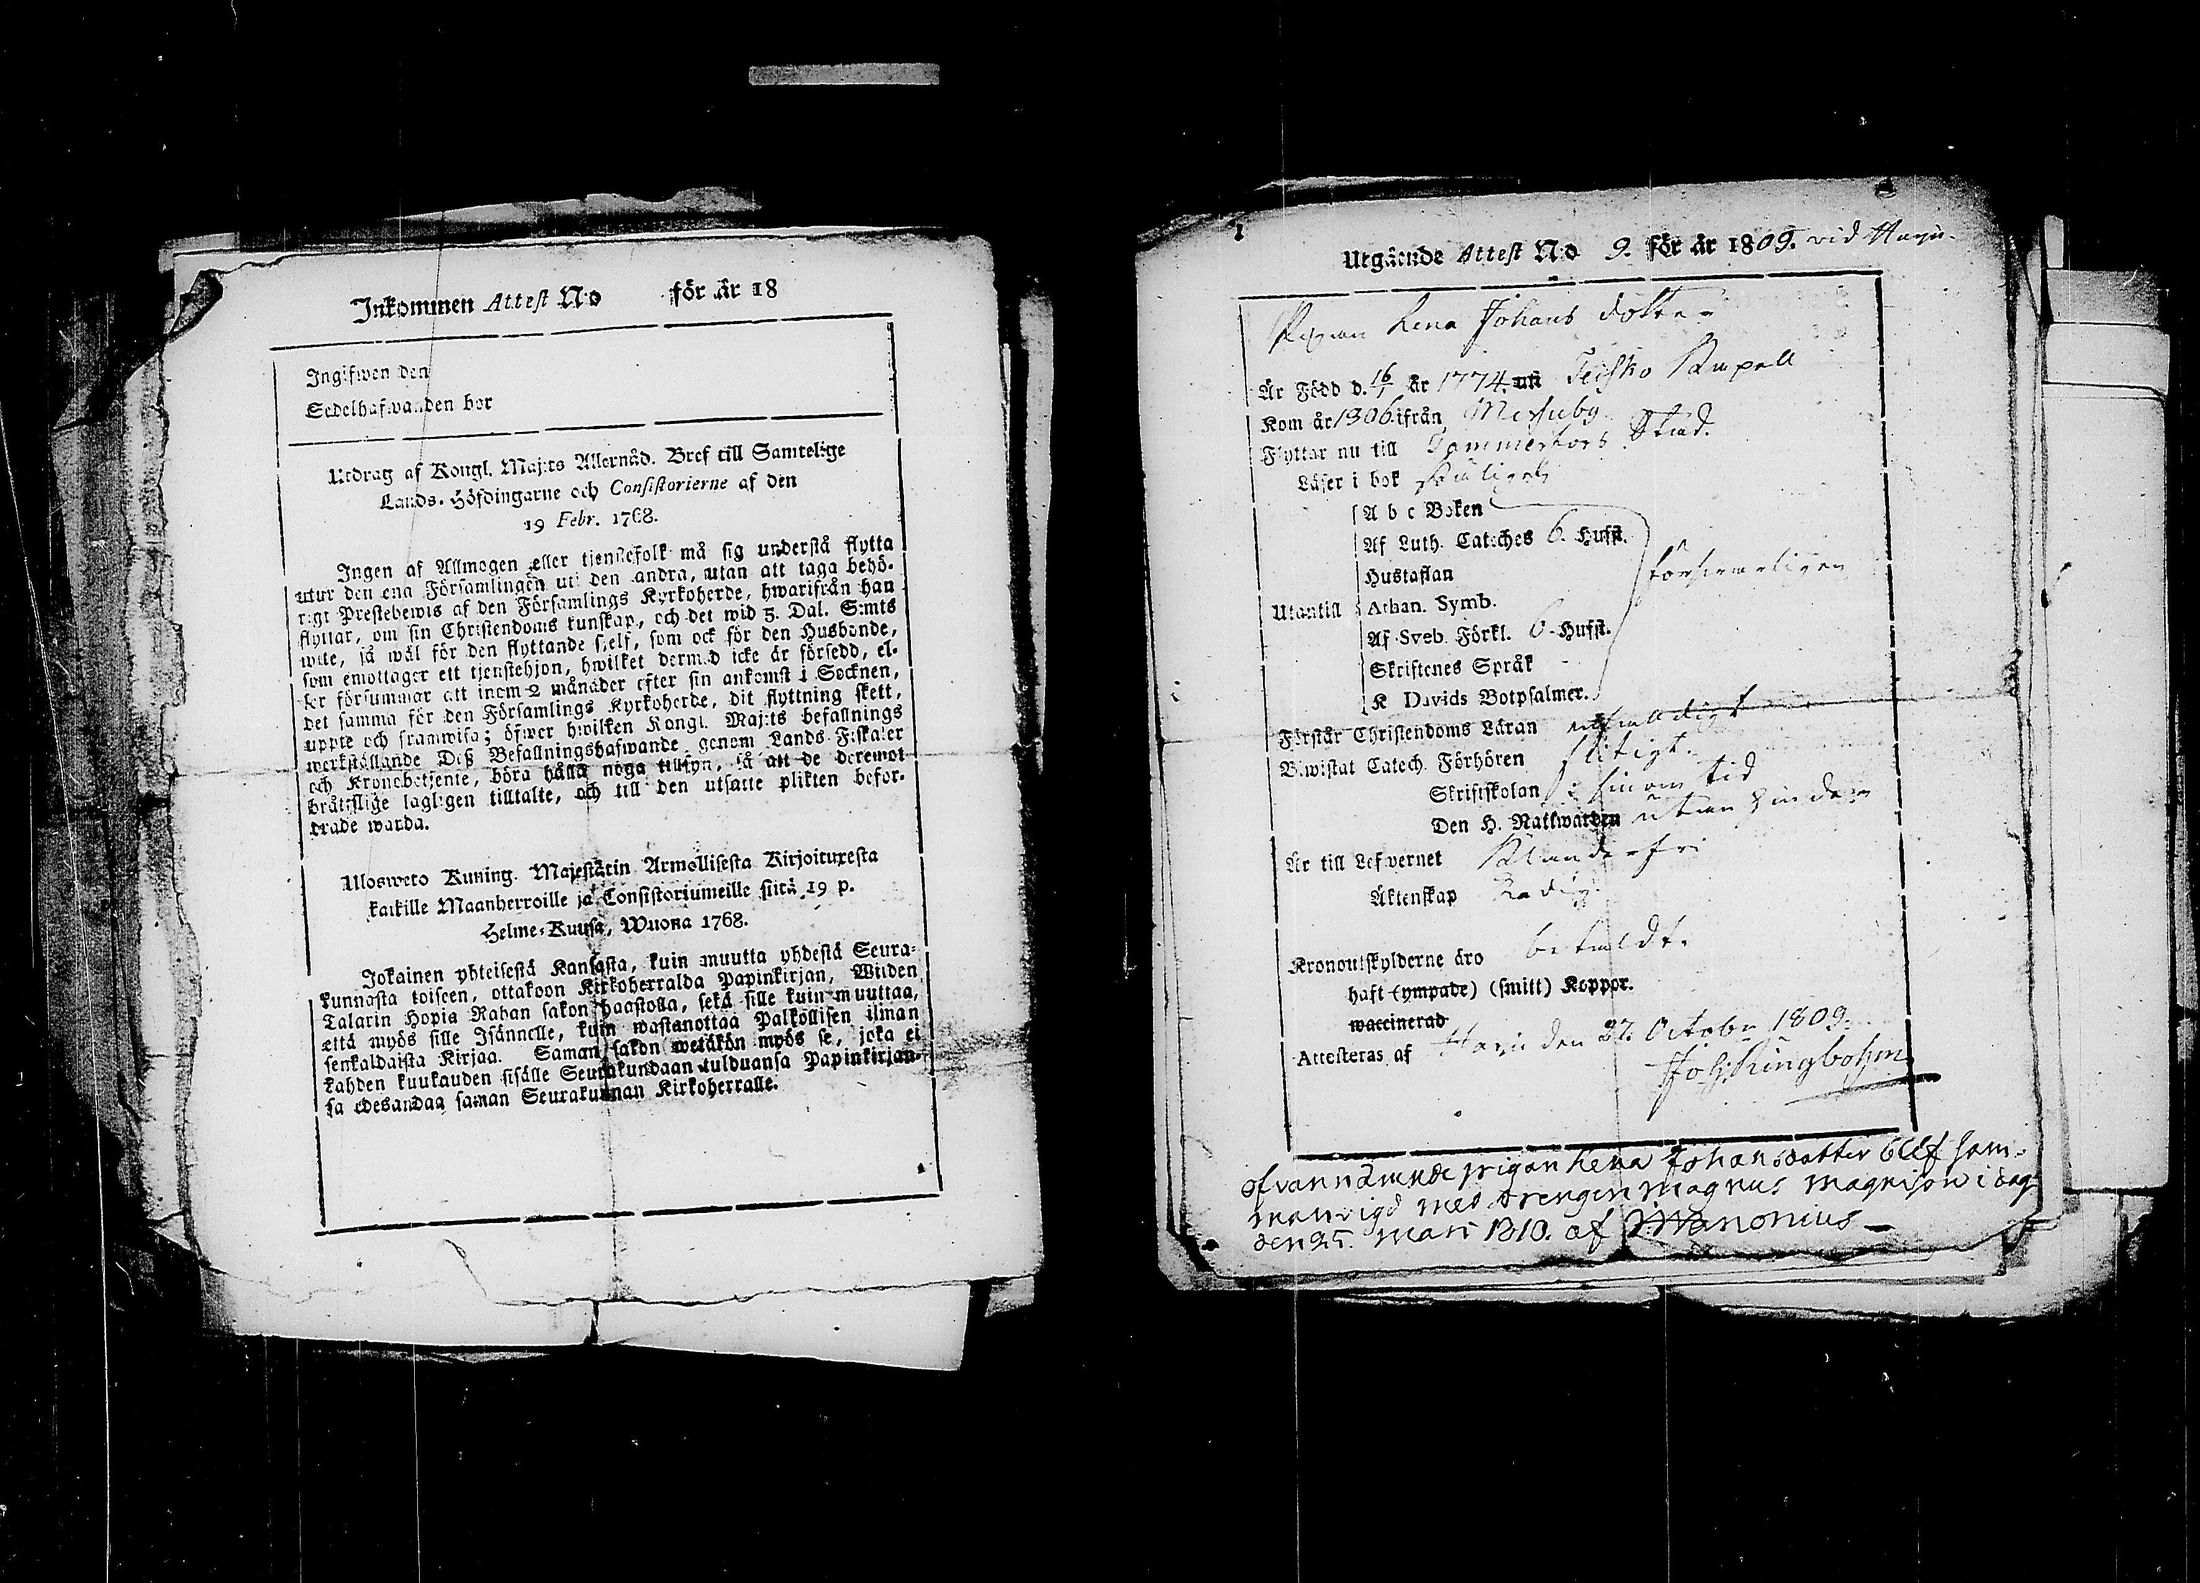 Inkommen Attest No för år 18
Ingifwen den
Sedelhafwanden bor
Utdrag af Kongl. Maj:ts Allernåd. Bref till Samtelige
Lands-Höfdingarne och Consistorierne af den
19 Febr. 1768.
Ingen af Allmogen eller tjenstefolk må sig understå flytta
utur den ena Församlingen uti den andra, utan att taga behö-
rigt Prestebewis af den Församlings Kyrkoherde, hwarifrån han
flyttar, om sin Christendoms kunskap, och det wid 5. Dal. S:mts
wite, så wäl för den flyttande sjelf, som ock för den Husbonde,
som emottager ett tjenstehjon, hwilket dermed icke är försedd, el-
ler försummar att inom 2 månader efter sin ankomst i Socknen,
det samma för den Församlings Kyrkoherde, dit flyttning skett,
uppte och framwisa; öfwer hwilken Kongl. Maj:ts befallnings
werkställande Deß Befallningshafwande genom Lands-Fiskaler
och Kronobetjente, böra hålla noga tillsyn, så att de deremot
bråtslige lagligen tilltalte, och till den utsatte plikten befor-
drade warda.
Ulosweto Kuning. Majestätin Armollisesta Kirjoituxesta
kaikille Maanherroille ja Consistoriumeille siitä 19 p.
Helme-Kuusa, Wuona 1768.
Jokainen yhteisestä Kansasta, kuin muutta yhdestä Seura-
kunnasta toiseen, ottakoon Kirkoherralda Papinkirjan, Wiiden
Talarin Hopia Rahan sakon haastolla, sekä sille kuin muuttaa,
että myös sille Isännelle, kuin wastanottaa Palkollisen ilman
senkaldaista Kirjaa. Saman sakon wetäkön myös se, joka ei
kahden kuukauden sisälle Seurakundaan tulduansa Papinkirjan-
sa edesandaa saman Seurakunnan Kirkoherralle.
1
Utgående Attest No 9. för år 1809. vid Harju.
Pigan Lena Johans dotter
Är Född d. 16/1 år 1774 uti Teisko Kapell
Kom år 1806 ifrån Messuby
Flyttar nu till Tammerfors Stad.
Läser i bok
A b c Boken
Af Luth. Cateches 6. Hufst.
Hustaflan
försvarligen
Utantill Athan. Symb.
Af Sveb. Förkl. 6. Hufst.
Skriftenes Språk
K Davids Botpsalmer.
Förstår Christendoms Läran
Bewistat Catech. Förhören flitigt.
Skriftskolan i sinom tid
Den H. Nattwarden utan hinder
Är till Lefwernet Klanderfri
Äktenskap Ledig
Kronoutskylderne äro betaldt.
haft (ympade) (smitt) Koppor.
waccinerad
Attesteras af Harju den 27. Octobr 1809.
Joh: Kingbohm
ofvannämnde pigan Lena Johansdotter blef sam-
manvigd med drengen Magnus Magnison i dag
den 25. mars 1810. af